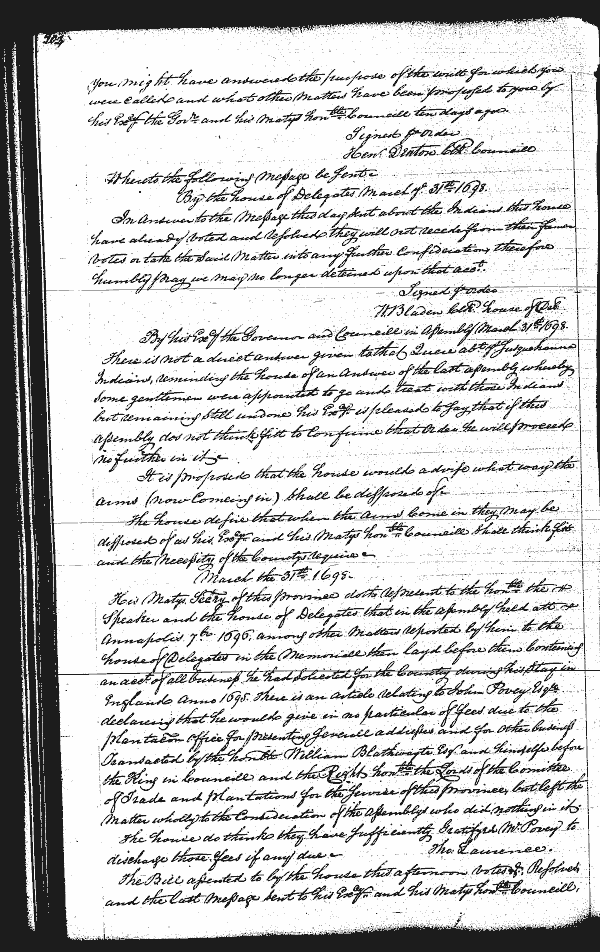 you might have answered the purpose of the writt for which you
were called and what other Matters have been proposed to you by
his Exc.y the Gov.r and his Maty.s hon.ble Councill ten days agoe
Signed p order
Hen: Denton Clk Councill
Whereto the following Message be sent
By the house of Delegates March y.e 31.th 1698.
In Answer to the Message this day sent about the Indians this house
have already Voted and Resolved they will not recede from their former
Votes or take the said Matter into any further Consideration therefore
humbly pray we may no longer detained upon that acc.t
Signed p order
W Bladen Clk house of Del
By his Exc.y the Governor and Councill in Assembly March 31.st 1698.
There is not a direct answer given to the Quere ab.t y.e Susquehanna
Indians, reminding the house of an Answer of the last assembly whereby
some gentlemen were appointed to go and treat with those Indians
but remaining still undone his Exc.y is pleased to say that if this
assembly dos not think fitt to Confirme that Order he will proceed
no further in it
It is proposed that the house would advise what way the
arms (now Comeing in) shall be disposed of
The house desire that when the Arms Come in they may be
disposed of as his Exc.y and his Matys hon.ble Councill shall think fitt
and the necessity of the Countys require
March the 31.th 1698.
His Matys Secry of this Province doth represent to the hon.ble the
Speaker and the house of Delegates that in the assembly held att
Annapolis 7.br 1696. among other Matters reported by him to the
house of Delegates in the Memoriall then layd before them Containing
an acct of all business he had Solicited for the Country during his stay in
England Anno 1695. There is an article relating to John Povey Esq.r
declareing that he would give in no particular of fees due to the
plantacon office for presenting severall addresses and for other business
Transacted by the honble William Blathwayte Esq.r and himselfe before
the King in Councill and the Right hon.ble the Lords of the Comittee
of Trade and plantations for the Service of this Province, but left the
Matter wholly to the Consideration of the Assemblys who did nothing in it
The house do think they have sufficiently Gratifyed M.r Povey to
discharge those fees if any due Tho: Laurence.
The Bill assented to by the house this afternoon votes & Resolves
and the last Message sent to his Exc.y and his Matys hon.ble Councill.